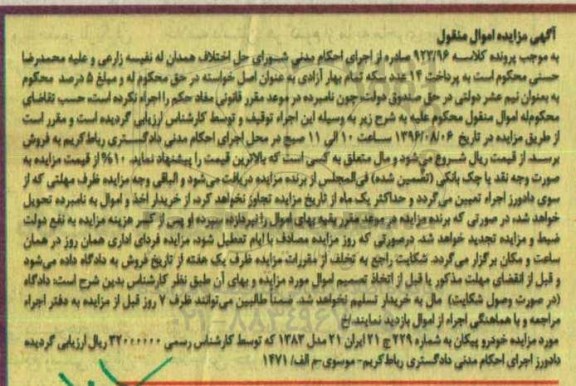 آگهی مزایده اموال منقول
به موجب پرونده کلاسه ۹۲۳/۹۶ صادره از اجرای احکام مدنی شورای حل اختلاف همدان له نفیسه زارعی و علیه محمدرضا
حسنی محکوم است به پرداخت ۱۴ عدد سکه تمام بهار آزادی به عنوان اصل خواسته در حق محکوم له و مبلغ ۵ درصد محکوم
به بعنوان نیم عشر دولتی در حق صندوق دولت، چون نامبرده در موعد مقرر قانونی مفاد حکم را اجراء نکرده است، حسب تقاضای
محکوم‌له اموال منقول محکوم علیه به شرح زیر به وسیله این اجراء توقیف و توسط کارشناس ارزیابی گردیده است و مقرر است
از طریق مزایده در تاریخ ۱۳۹۶/۰۸/۰۶ ساعت ۱۰ الی ۱۱ صبح در محل اجرای احکام مدنی دادگستری رباط‌کریم به فروش
برسد. از قیمت ریال شروع می‌شود و مال متعلق به کسی است که بالاترین قیمت را پیشنهاد نماید. ۱۰% از قیمت مزایده به
صورت وجه نقد یا چک بانکی (تضمین شده) فی‌المجلس از برنده مزایده دریافت می‌شود و الباقی وجه مزایده ظرف مهلتی که از
سوی دادورز اجراء تعیین می‌گردد و حداکثر یک ماه از تاریخ مزایده تجاوز نخواهد کرد، از خریدار اخذ و اموال به نامبرده تحویل
خواهد شد، در صورتی که برنده مزایده در موعد مقرر بقیه بهای اموال را نپردازد، سپرده او پس از کسر هزینه مزایده به نفع دولت
ضبط و مزایده تجدید خواهد شد. درصورتی که روز مزایده مصادف با ایام تعطیل شود، مزایده فردای اداری همان روز در همان
ساعت و مکان برگزار می‌گردد. شکایت راجع به تخلف از مقررات مزایده ظرف یک هفته از تاریخ فروش به دادگاه داده می‌شود
و قبل از انقضای مهلت مذکور یا قبل از اتخاذ تصمیم اموال مورد مزایده و بهای آن طبق نظر کارشناس بدین شرح است: دادگاه
(در صورت وصول شکایت) مال به خریدار تسلیم نخواهد شد. ضمناً طالبین می‌توانند ظرف ۷ روز قبل از مزایده به دفتر اجراء
مراجعه و با هماهنگی اجراء از اموال بازدید نمایند.
مورد مزایده خودرو پیکان به شماره ۲۲۹ ج ۲۱ ایران ۲۱ مدل ۱۳۸۳ که توسط کارشناس رسمی ۳۲۰۰۰۰۰۰ ریال ارزیابی گردیده
دادورز اجرای احکام مدنی دادگستری رباط‌کریم- موسوی-م الف/ ۱۴۷۱